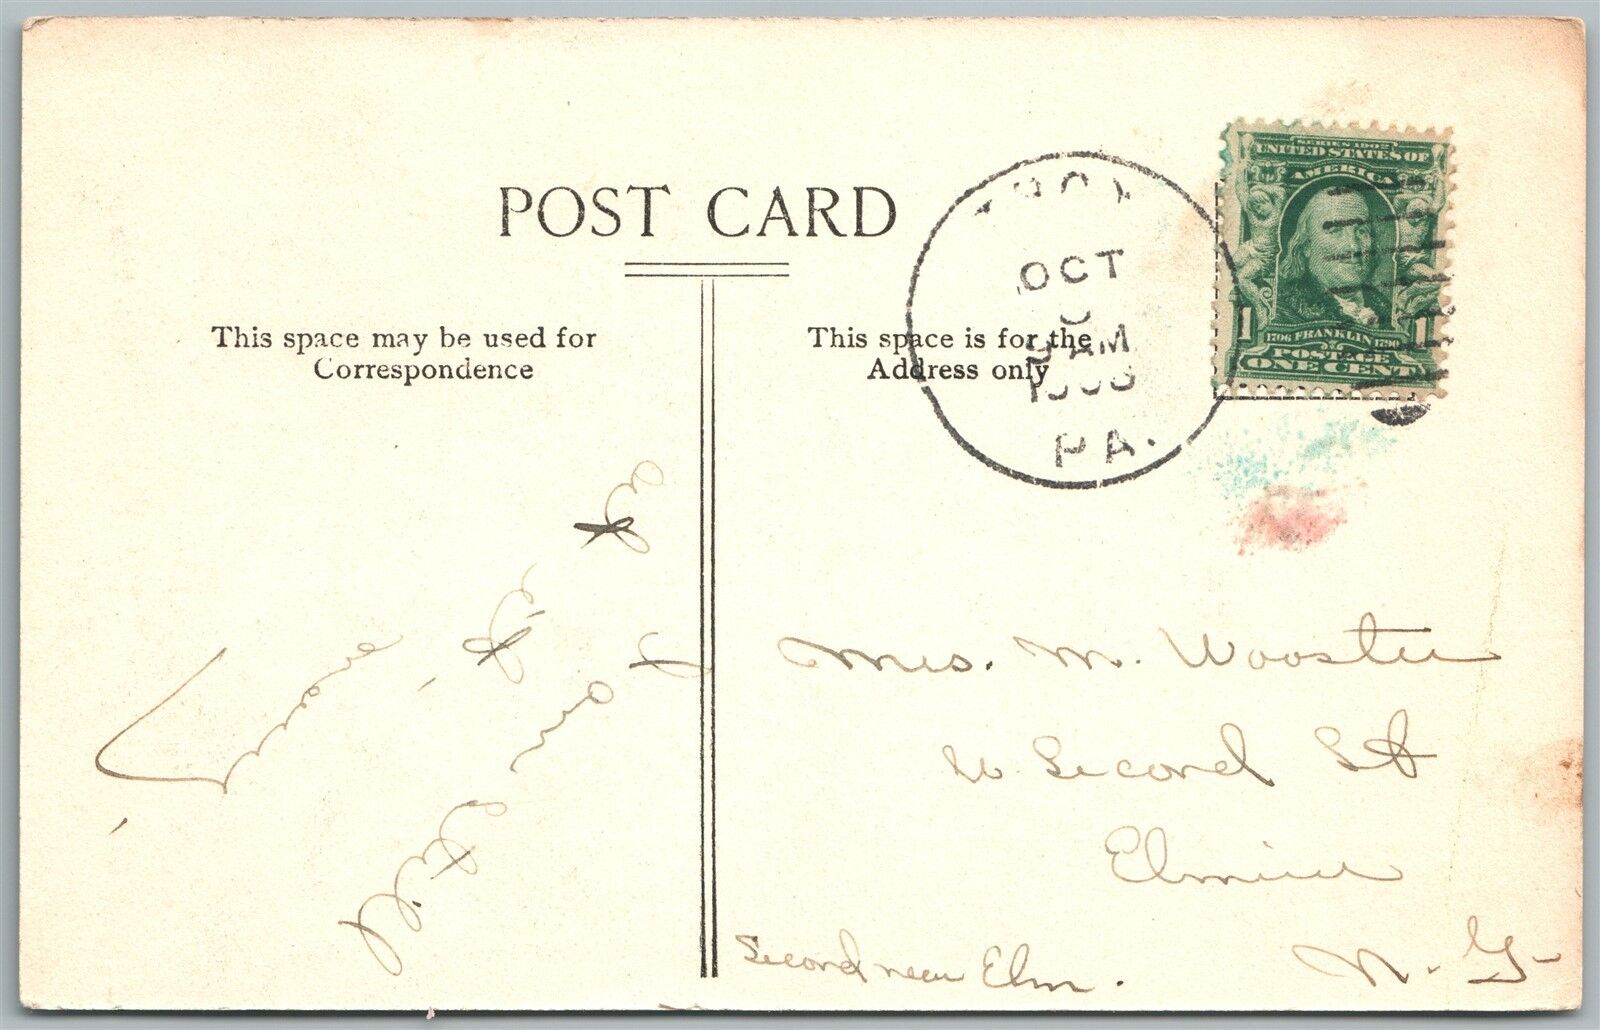 POST CARD
This space may be used for
Correspondence
This space is for the
Address only
OCT
AM
PA.
SERIES 1902
UNITED STATES OF
AMERICA
1 1
1706 FRANKLIN 1790
POSTAGE
ONE CENT
Mrs. M. Wooster
W. Second St
Elmira
N. Y.
Second near Elm.
I
am still
at